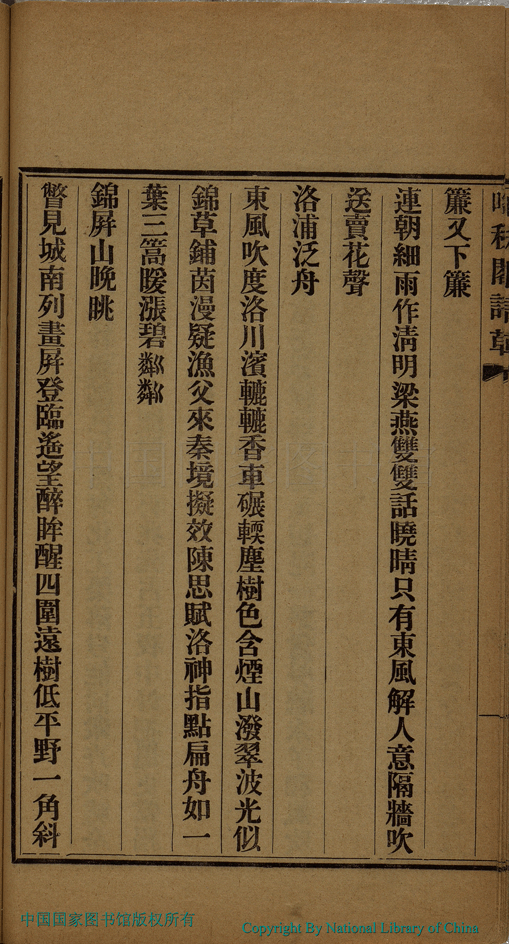 閣詩草
簾又下簾
連朝細雨作淸明梁燕雙雙話曉晴只有東風解人意隔牆吹
送賣花聲
洛浦泛舟
東風吹度洛川濱轆轆香車碾輭塵樹色含煙山潑翠波光似
錦草鋪茵漫疑漁父來秦境擬效陳思賦洛神指點扁舟如一
葉三篙暖漲碧粼粼
錦屛山晚眺
瞥見城南列畫屛登臨遙望醉眸醒四圍遠樹低平野一角斜
中国国家图书馆版权所有
Copyright By National Library of China